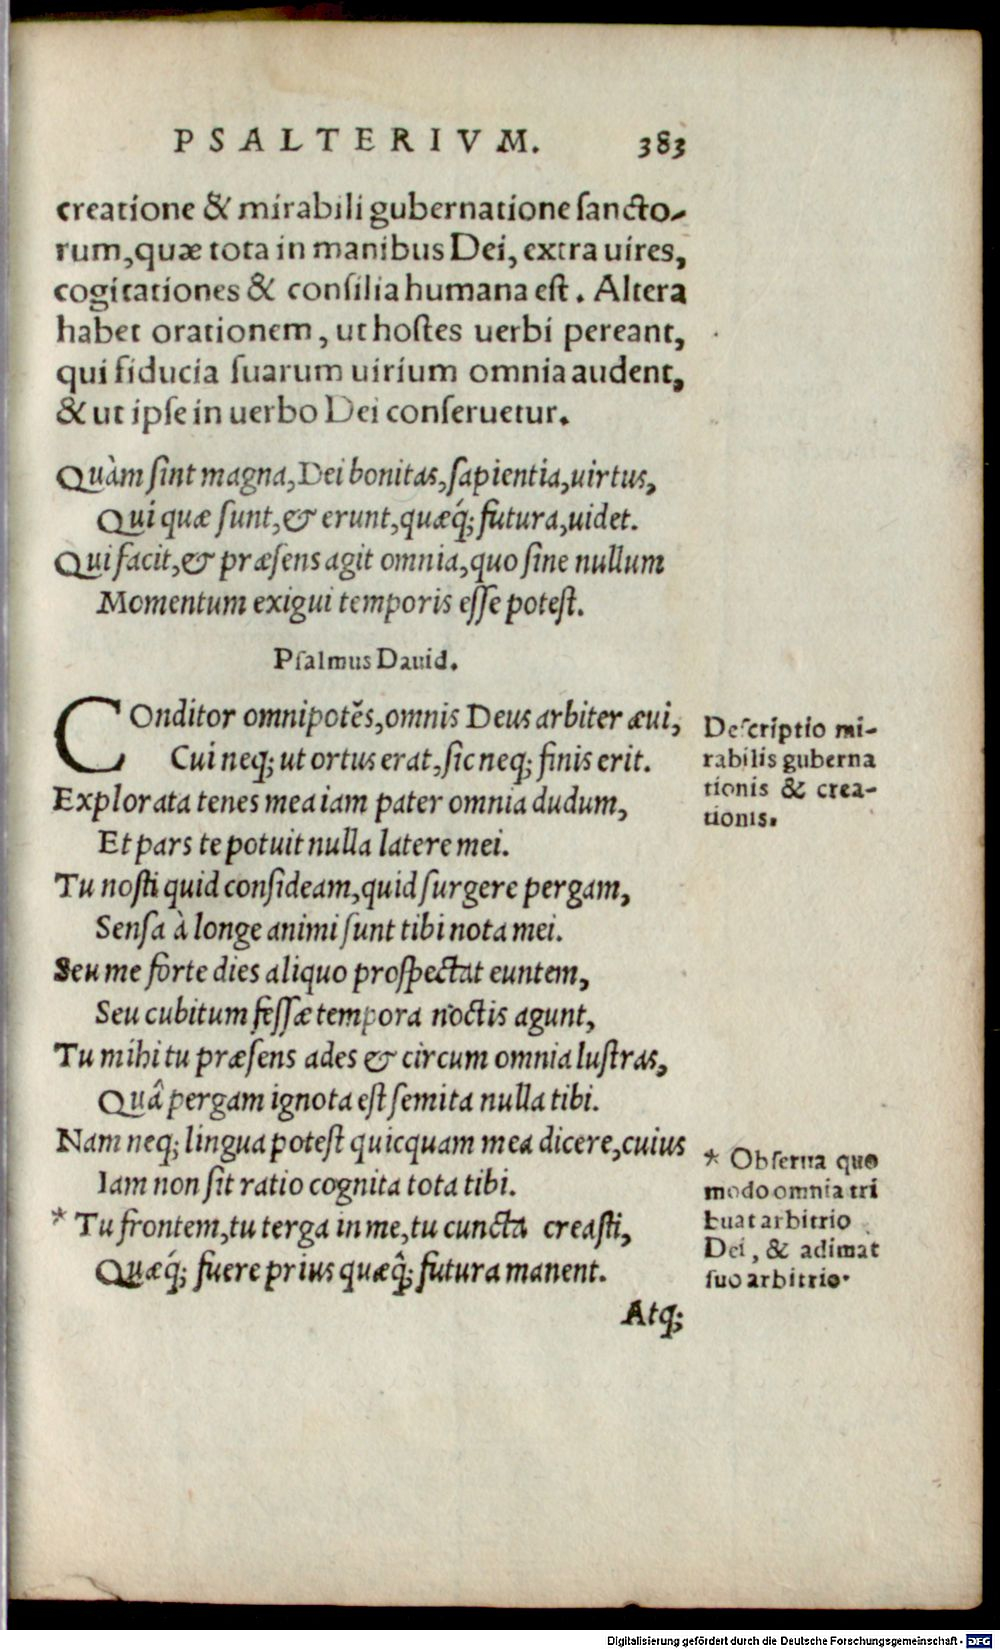 PSALTERIVM. 383
creatione & mirabili gubernatione sancto-
rum, quæ tota in manibus Dei, extra uires,
cogitationes & consilia humana est. Altera
habet orationem, ut hostes uerbi pereant,
qui fiducia suarum uirium omnia audent,
& ut ipse in uerbo Dei conseruetur.
Quàm sint magna, Dei bonitas, sapientia, uirtus,
Qui quæ sunt, & erunt, quæq́; futura, uidet.
Qui facit, & præsens agit omnia, quo sine nullum
Momentum exigui temporis esse potest.
Psalmus Dauid.
COnditor omnipotẽs, omnis Deus arbiter æui,
Cui neq; ut ortus erat, sic neq; finis erit.
Explorata tenes mea iam pater omnia dudum,
Et pars te potuit nulla latere mei.
Tu nosti quid consideam, quid surgere pergam,
Sensa à longe animi sunt tibi nota mei.
Seu me forte dies aliquo prospectat euntem,
Seu cubitum fessæ tempora noctis agunt,
Tu mihi tu præsens ades & circum omnia lustras,
Quâ pergam ignota est semita nulla tibi.
Nam neq; lingua potest quicquam mea dicere, cuius
Iam non sit ratio cognita tota tibi.
* Tu frontem, tu terga in me, tu cuncta creasti,
Quæq́; fuere prius quæq̂; futura manent.
Atq;
Descriptio mi-
rabilis guberna
tionis & crea-
tionis.
* Obserua quo
modo omnia tri
buat arbitrio
Dei, & adimat
suo arbitrio.
Digitalisierung gefördert durch die Deutsche Forschungsgemeinschaft - DFG